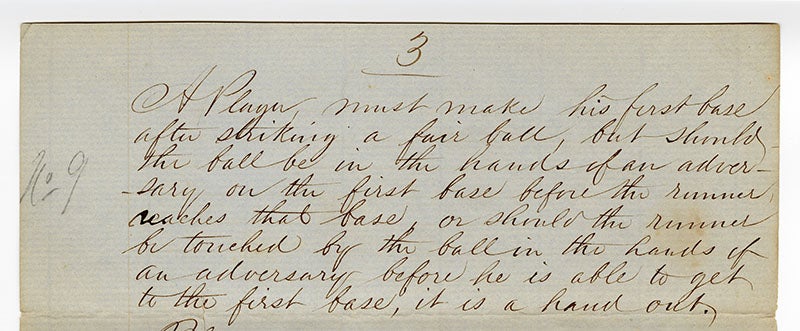 3
A Player, must make his first base
after striking a fair ball, but should
the ball be in the hands of an adver-
-sary on the first base before the runner,
reaches that base, or should the runner
be touched by the ball in the hands of
an adversary before he is able to get
to the first base, it is a hand out.
No 9